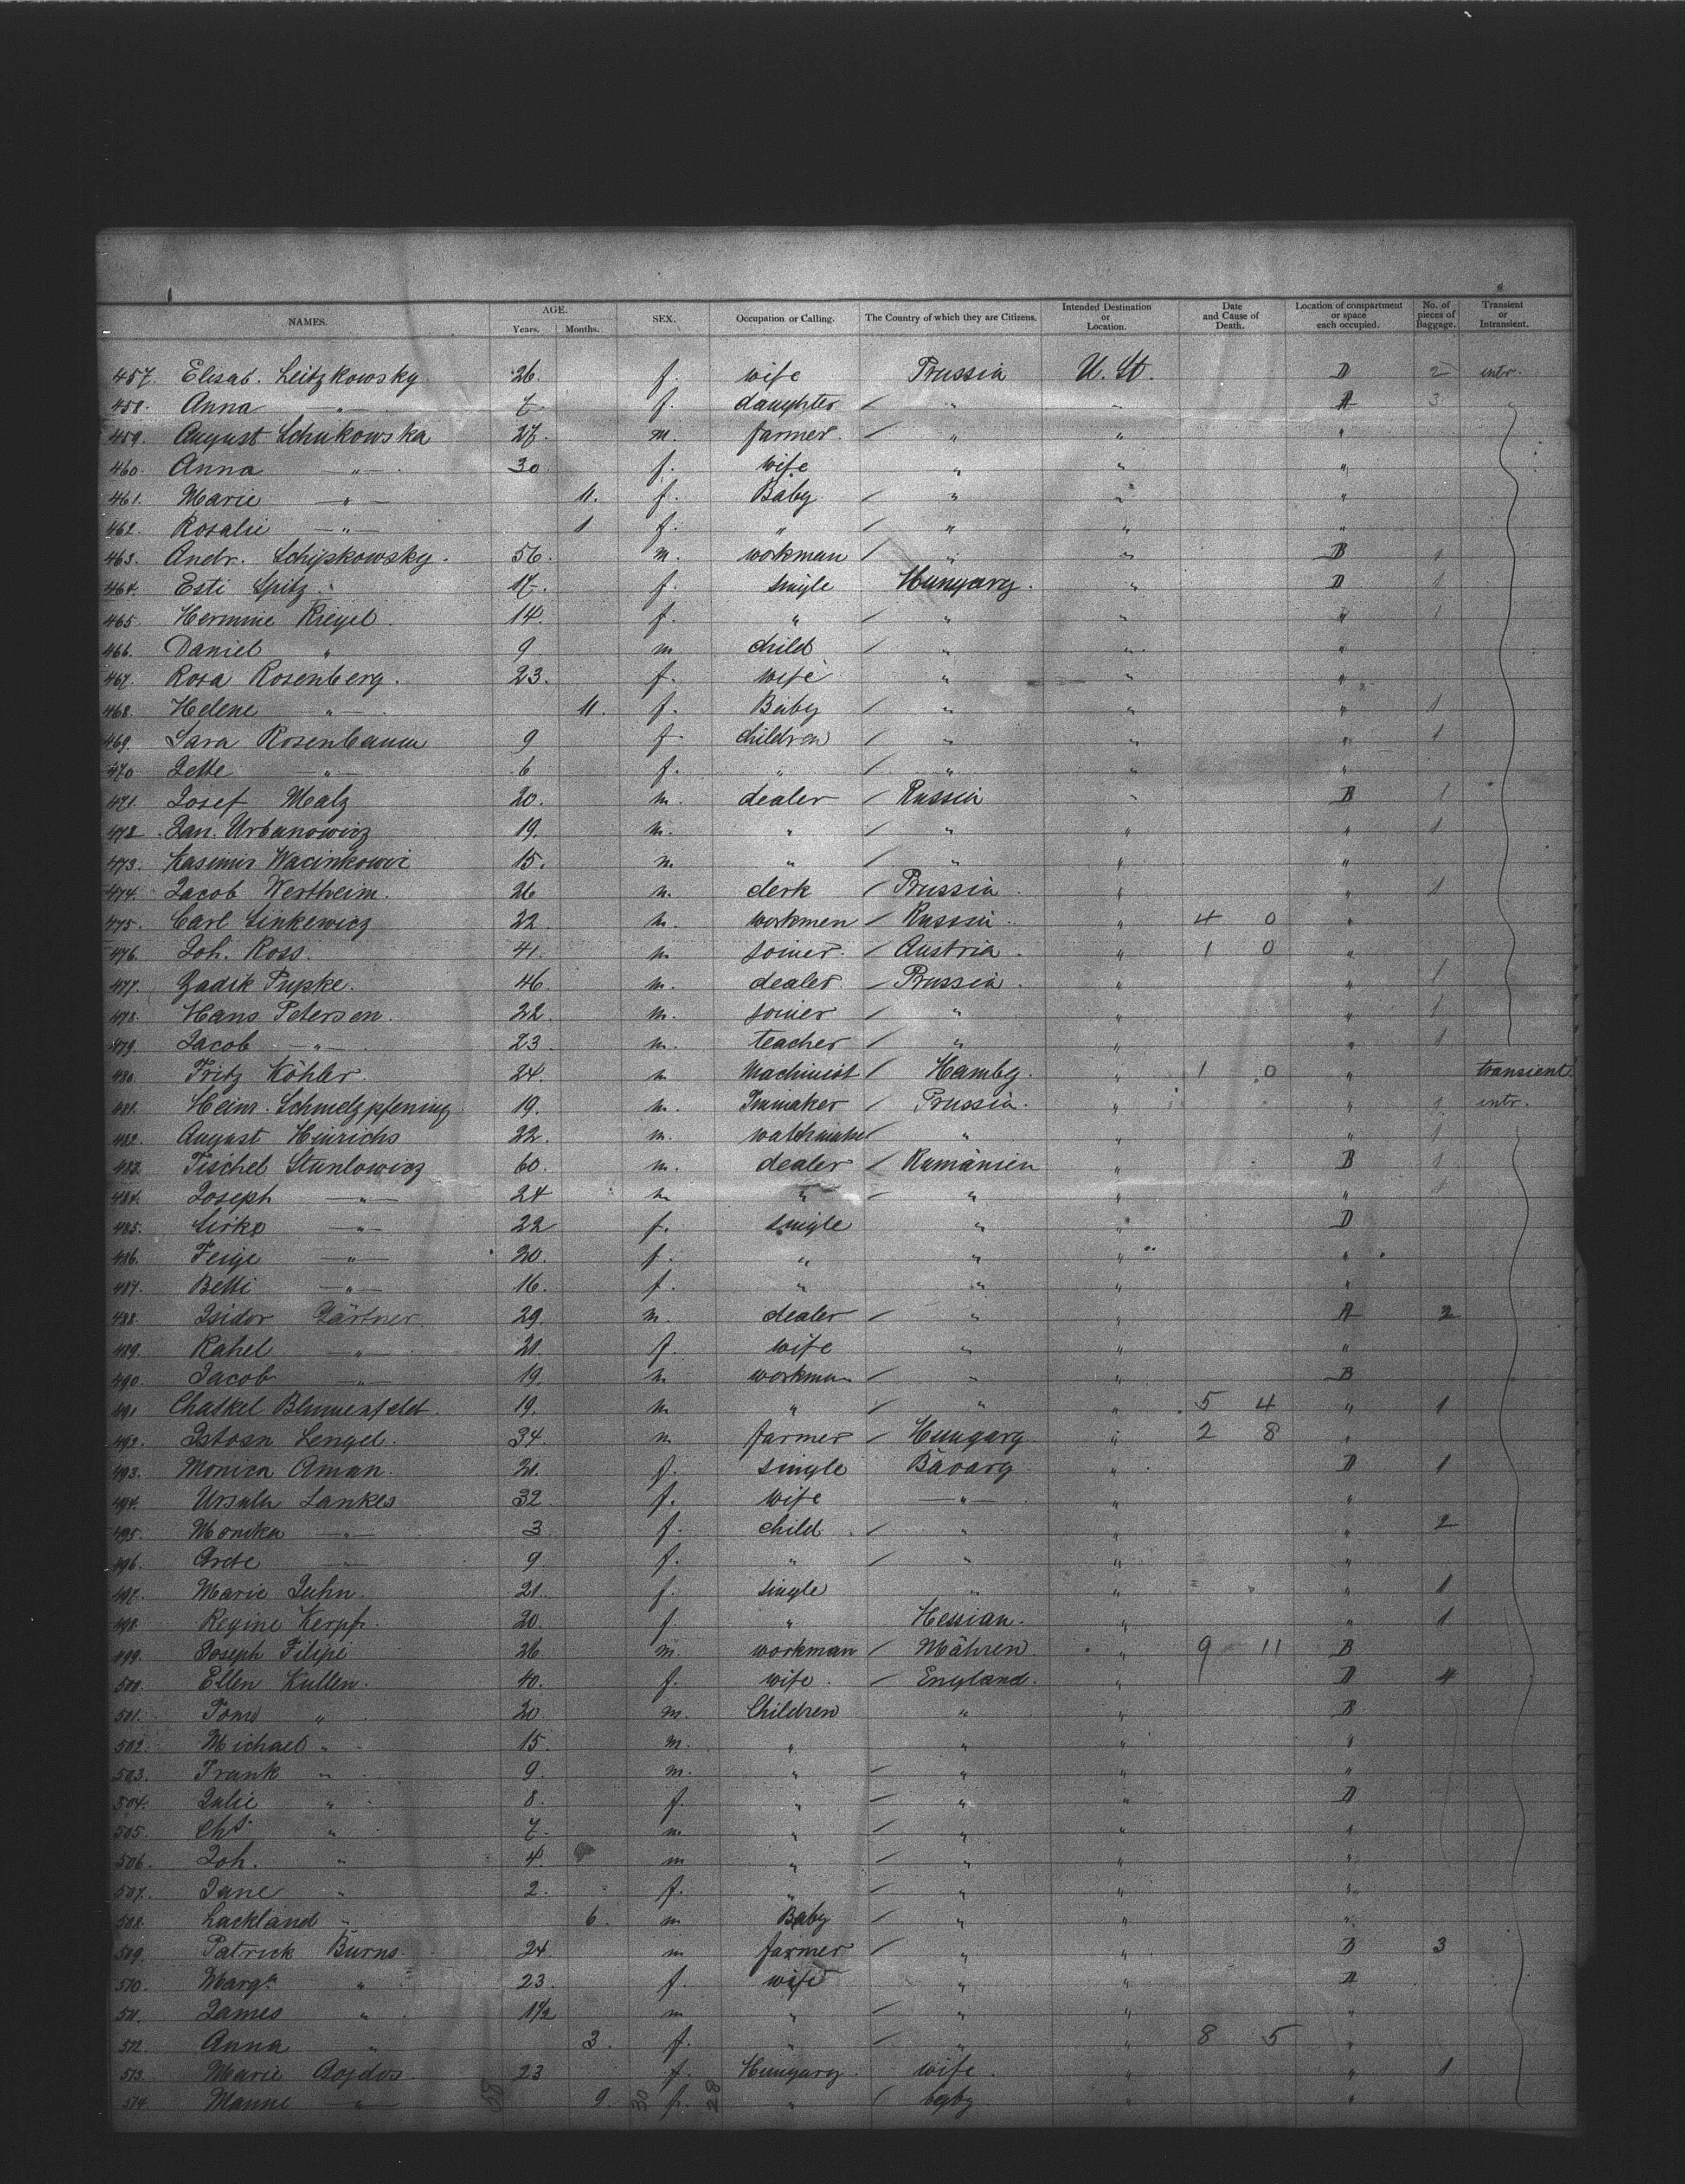 NAMES. AGE. Years. Months. SEX. Occupation or Calling. The Country of which they are Citizens. Intended Destination or Location. Date and Cause of Death. Location of compartment or space each occupied. No. of pieces of Baggage. Transient or Intransient.
457. Elisab. Leitzkowsky 26. f. wife Prussia U. St. D 2 intr.
458. Anna —"— 7 f. daughter / " " A 3
459. August Schukowska 27. m. farmer. / " " "
460. Anna —"— 30 f. wife " " "
461. Marie —"— 11. f. Baby / " " "
462. Rosalie —"— 1 f. " / " " "
463. Andr. Schipkowsky. 56. m. workman / " " B 1
464. Esti Spitz. 17. f. single Hungary. " D 1
465. Hermine Riegel. 14. f. " / " " " 1
466. Daniel " 9 m child / " " "
467. Rosa Rosenberg. 23. f. wife " " "
468. Helene —"— 11. f. Baby / " " " 1
469. Sara Rosenbaum 9 f. children / " " " 1
470 Zette —"— 6 f. " / " " "
471. Josef Malz 20. m. dealer / Russia " B 1
472. Jan. Urbanowicz 19. m. " / " " " 1
473. Kasimir Wacinkowic 15. m. " / " " "
474. Jacob Wertheim. 26 m. clerk / Prussia. " " 1
475. Carl Sinkewicz 22 m. workmen / Russia. " 4 0 "
476. Joh. Ross. 41. m. joiner. / Austria. " 1 0 "
477. Zadik Pupke. 46. m. dealer / Prussia. " " 1
478. Hans Petersen. 32. m. joiner / " " " 1
479. Jacob —"— 23 m. teacher / " " " 1
480. Fritz Köhler. 24. m Machinist / Hambg. " 1 0 " transient
481. Heinr. Schmelzpfening 19. m. / Prussia. " " 1 intr.
482. August Hinrichs 22. m. watchmaker / " " " 1
483. Fischel Stunlowicz 60. m. dealer / Rumänien " B 1
484. Joseph —"— 24 m " / " " " 1
485. —"— 22 f. single " " D
486. Feige —"— 20. f. " " " "
487. Betti —"— 16. f. " " " "
488. Isidor Gärtner. 29. m. dealer / " " A 2
489. Rahel —"— 21. f. wife " " "
490. Jacob —"— 19. m workman / " " B
491 Chaskel Blumenfeldt. 19. m. " / " " 5 4 " 1
492. Lengel. 34. m farmer / Hungary " 2 8 "
493. Monica Aman. 21. f. single Bavary " D 1
494. Ursula Lankes 32. f. wife —"— " "
495. Monika —"— 3 f. child / " " " 2
496. —"— 9. f. " / " " "
497. Marie Juhn. 21. f. single " " " 1
498. Regine Kerpf. 20. f. " Hessian. " " 1
499. Joseph Filipi 26 m. workman / Mähren " 9 11 B
500. Ellen Kullen. 40. f. wife. / England. " D 4
501. Tom " 20 m. Children " " B
502. Michael " 15 m. " " " "
503. Frank " 9. m. " / " " "
504. Julie " 8. f. " / " " D
505. " 7. m. " / " " "
506. Joh. " 4. m " / " " "
507. Jane " 2. f. " / " " "
508. Lackland " 6. m Baby / " " "
509. Patrick Burns. 24. m farmer / " " B 3
510. Marg.a " 23. f. wife " " D
511. James " 1½ m " / " " "
512. Anna " 3. f. " / " " 8 5 "
513. Marie 23 f. Hungary. wife. " " 1
514. —"— 9. f. " / baby " "
58 30 28